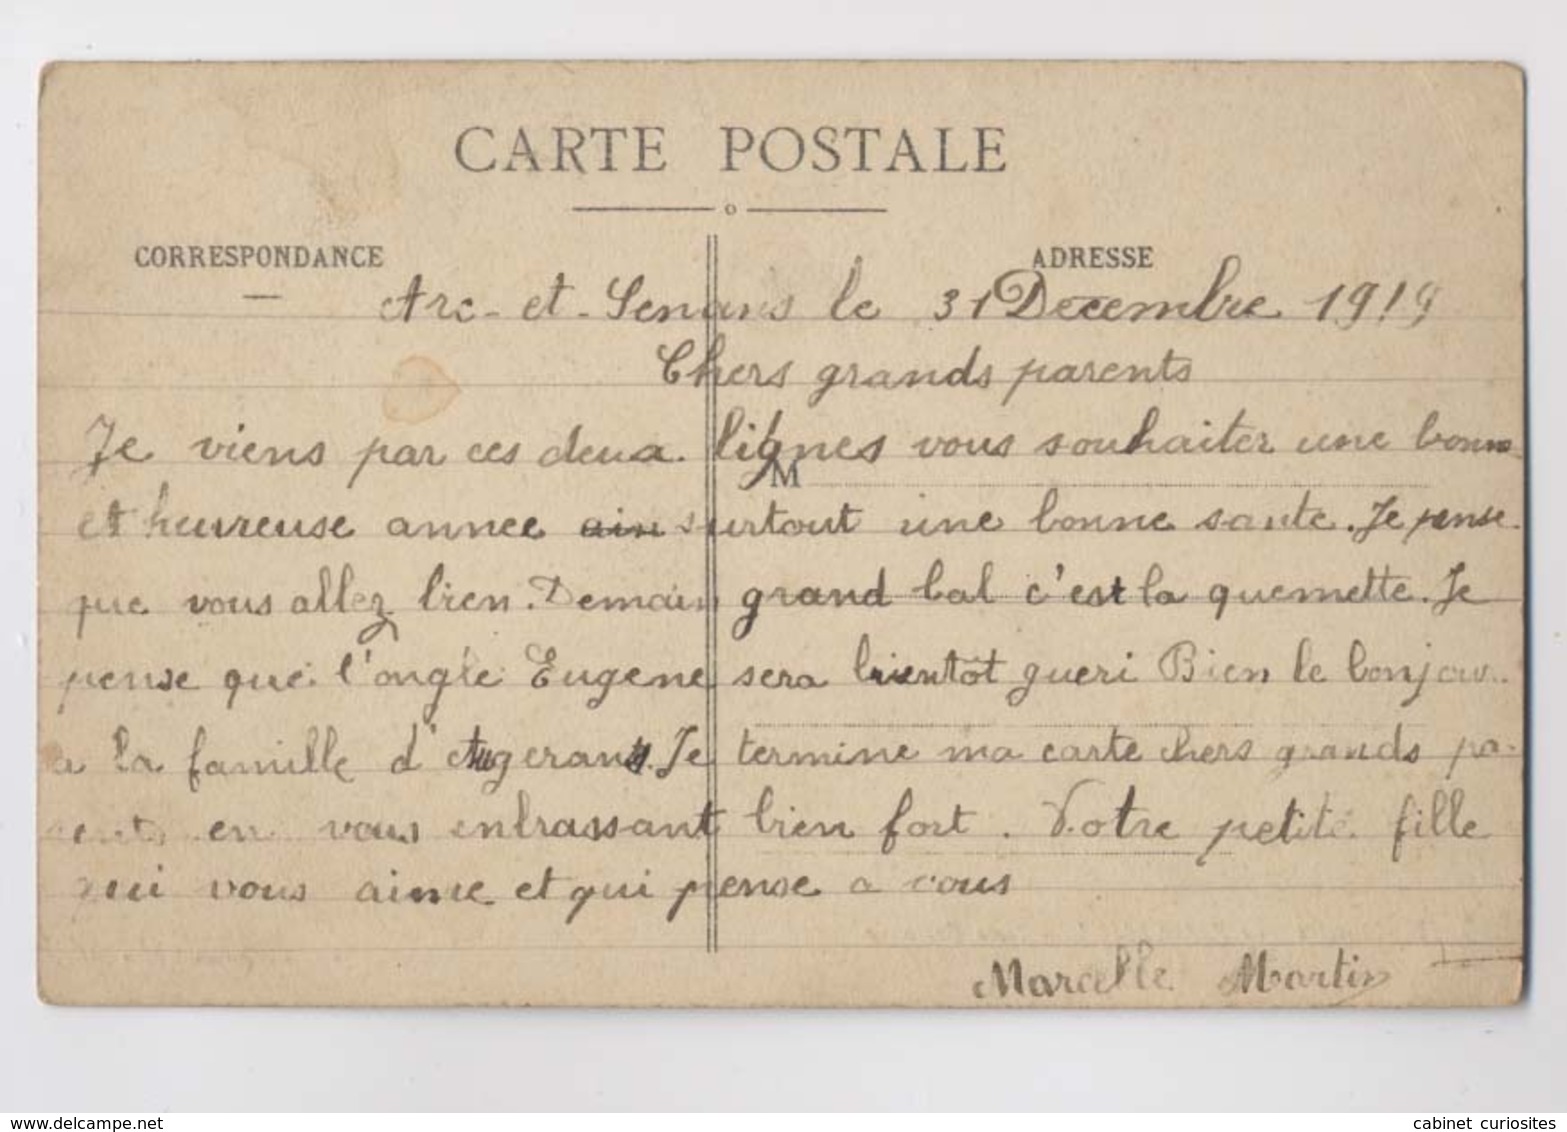 CARTE POSTALE
CORRESPONDANCE
ADRESSE
Arc-et-Senans le 31 Decembre 1919
Chers grands parents
Je viens par ces deux lignes vous souhaiter une bonne
M
et heureuse annee ain surtout une bonne sante. Je pense
que vous allez bien. Demain grand bal c'est la quemette. Je
pense que l'ongle Eugene sera bientôt gueri Bien le bonjour
a la famille d' Augerans. Je termine ma carte chers grands pa-
rents en vous enbrassant bien fort. Votre petite fille
qui vous aime et qui pense a vous
Marcelle Martin
www.delcampe.net
cabinet curiosites